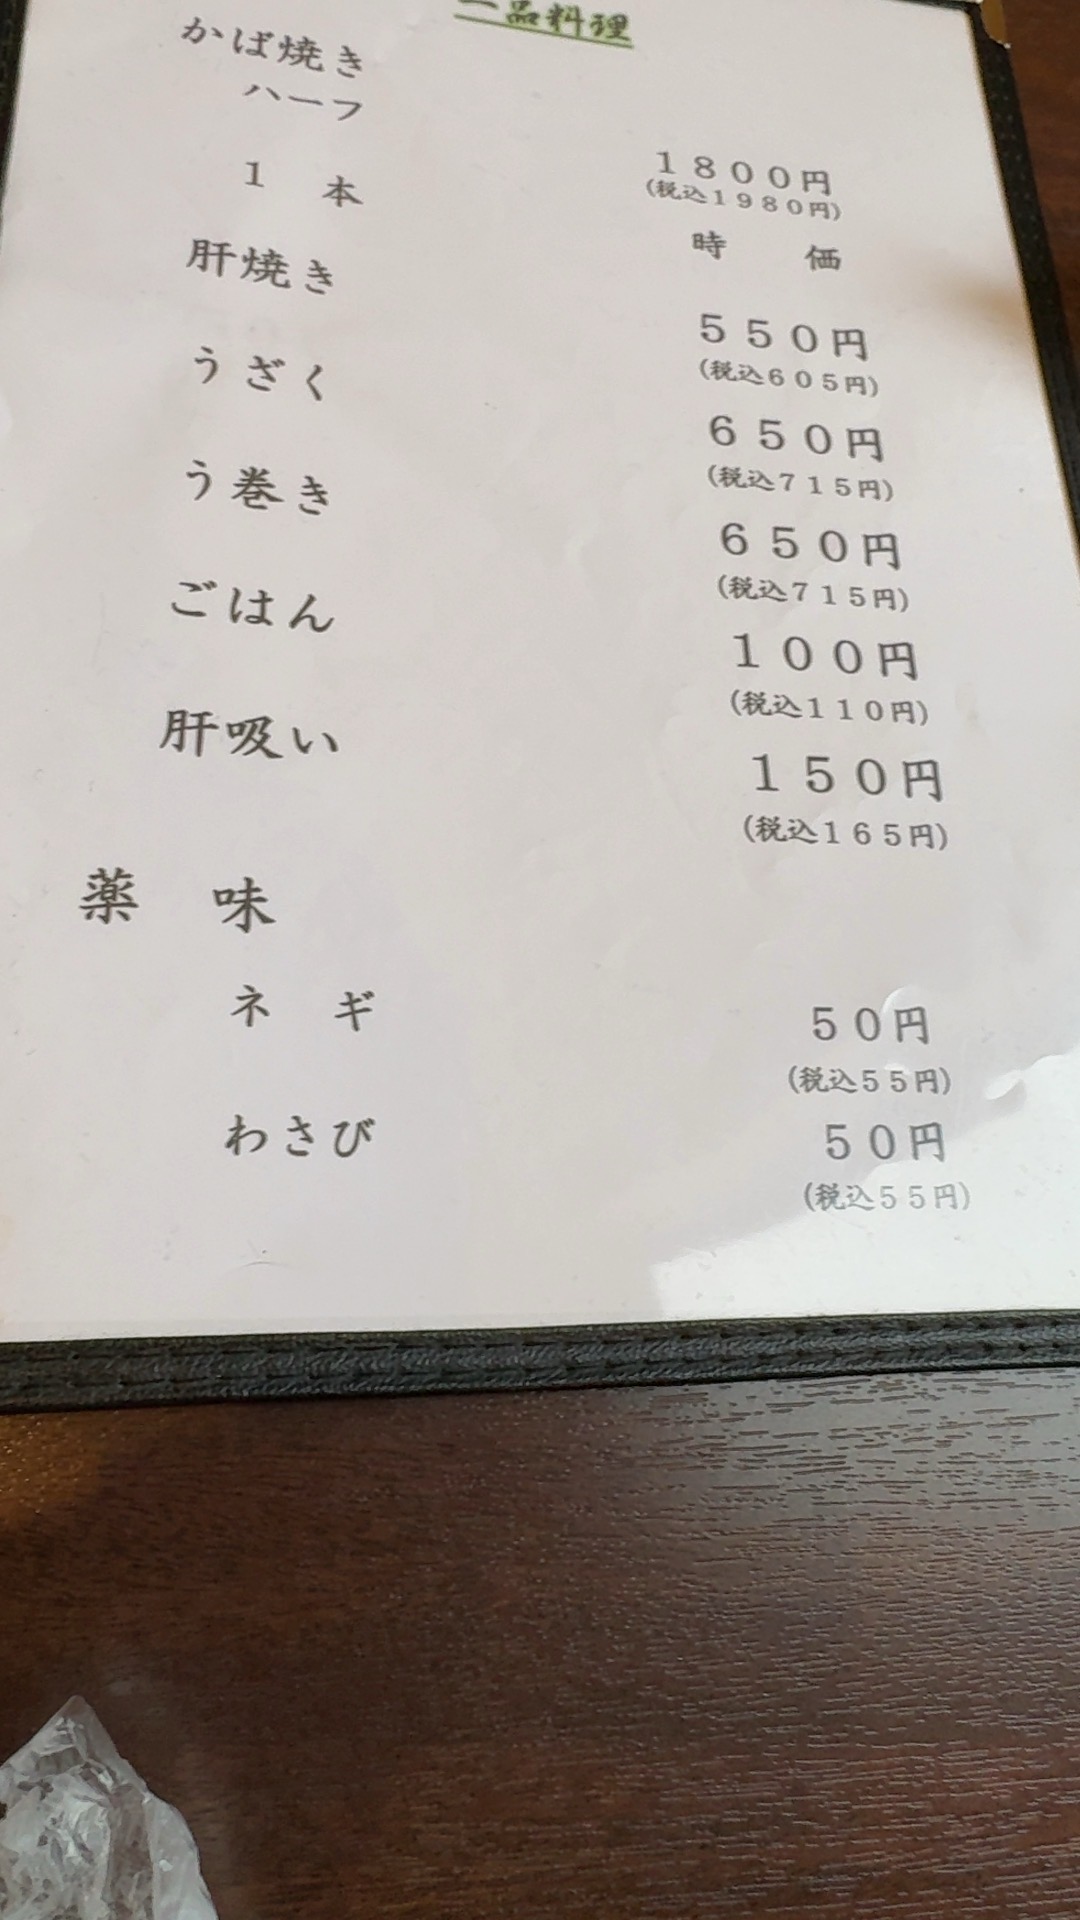 一品料理
かば焼き
ハーフ
１８００円
(税込１９８０円)
１　本
時　価
肝焼き
５５０円
(税込６０５円)
うざく
６５０円
(税込７１５円)
う巻き
６５０円
(税込７１５円)
ごはん
１００円
(税込１１０円)
肝吸い
１５０円
(税込１６５円)
薬　味
ネ　ギ
５０円
(税込５５円)
わさび
５０円
(税込５５円)